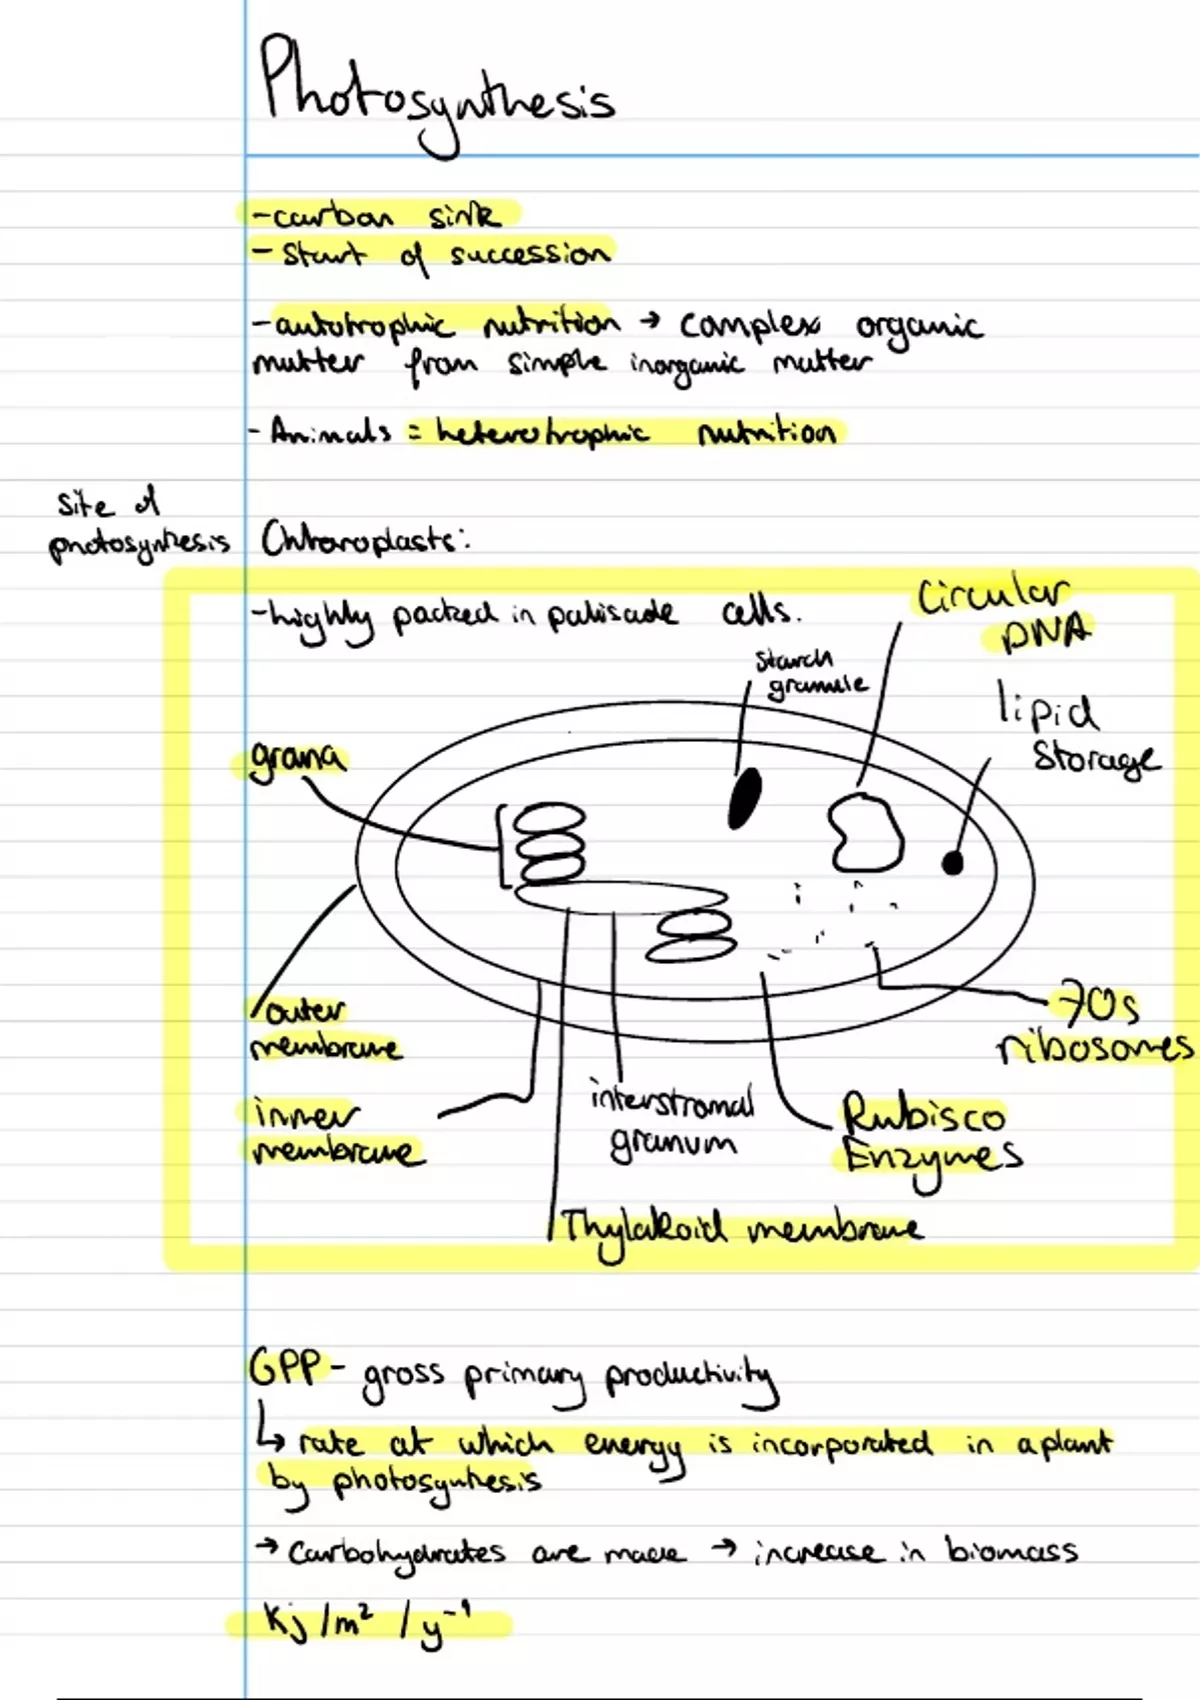 Photosynthesis
-carbon sink
- Start of succession
-autotrophic nutrition → complex organic
matter from simple inorganic matter
- Animals = heterotrophic nutrition
Site of
photosynthesis
Chloroplasts:
-highly packed in palisade cells.
Circular
DNA
Starch
granule
lipid
Storage
grana
outer
membrane
70s
ribosomes
inner
membrane
interstromal
granum
Rubisco
Enzymes
Thylakoid membrane
GPP- gross primary productivity
↳ rate at which energy is incorporated in a plant
by photosynthesis
→ Carbohydrates are made → increase in biomass
Kj /m² / y⁻¹